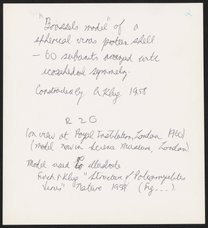 "Brussels model" of a
spherical virus protein shell
- 60 subunits arranged with
icosahedral symmetry.
Constructed by A. Klug 1958
R 20
(on view at Royal Institution, London 1960)
(model now in Science Museum, London)
Model used to illustrate
Finch & Klug "Structure of Poliomyelitis
Virus" Nature 1959 (Fig...)